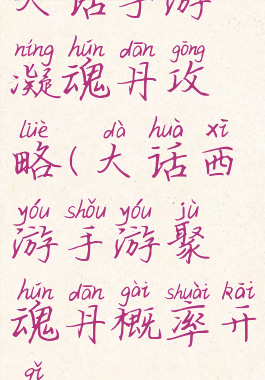 大话手游
níng hún dān gōng
凝魂丹攻
lüè dà huà xī
略(大话西
yóu shǒu yóu jù
游手游聚
hún dān gài shuài kāi
魂丹概率开
qǐ